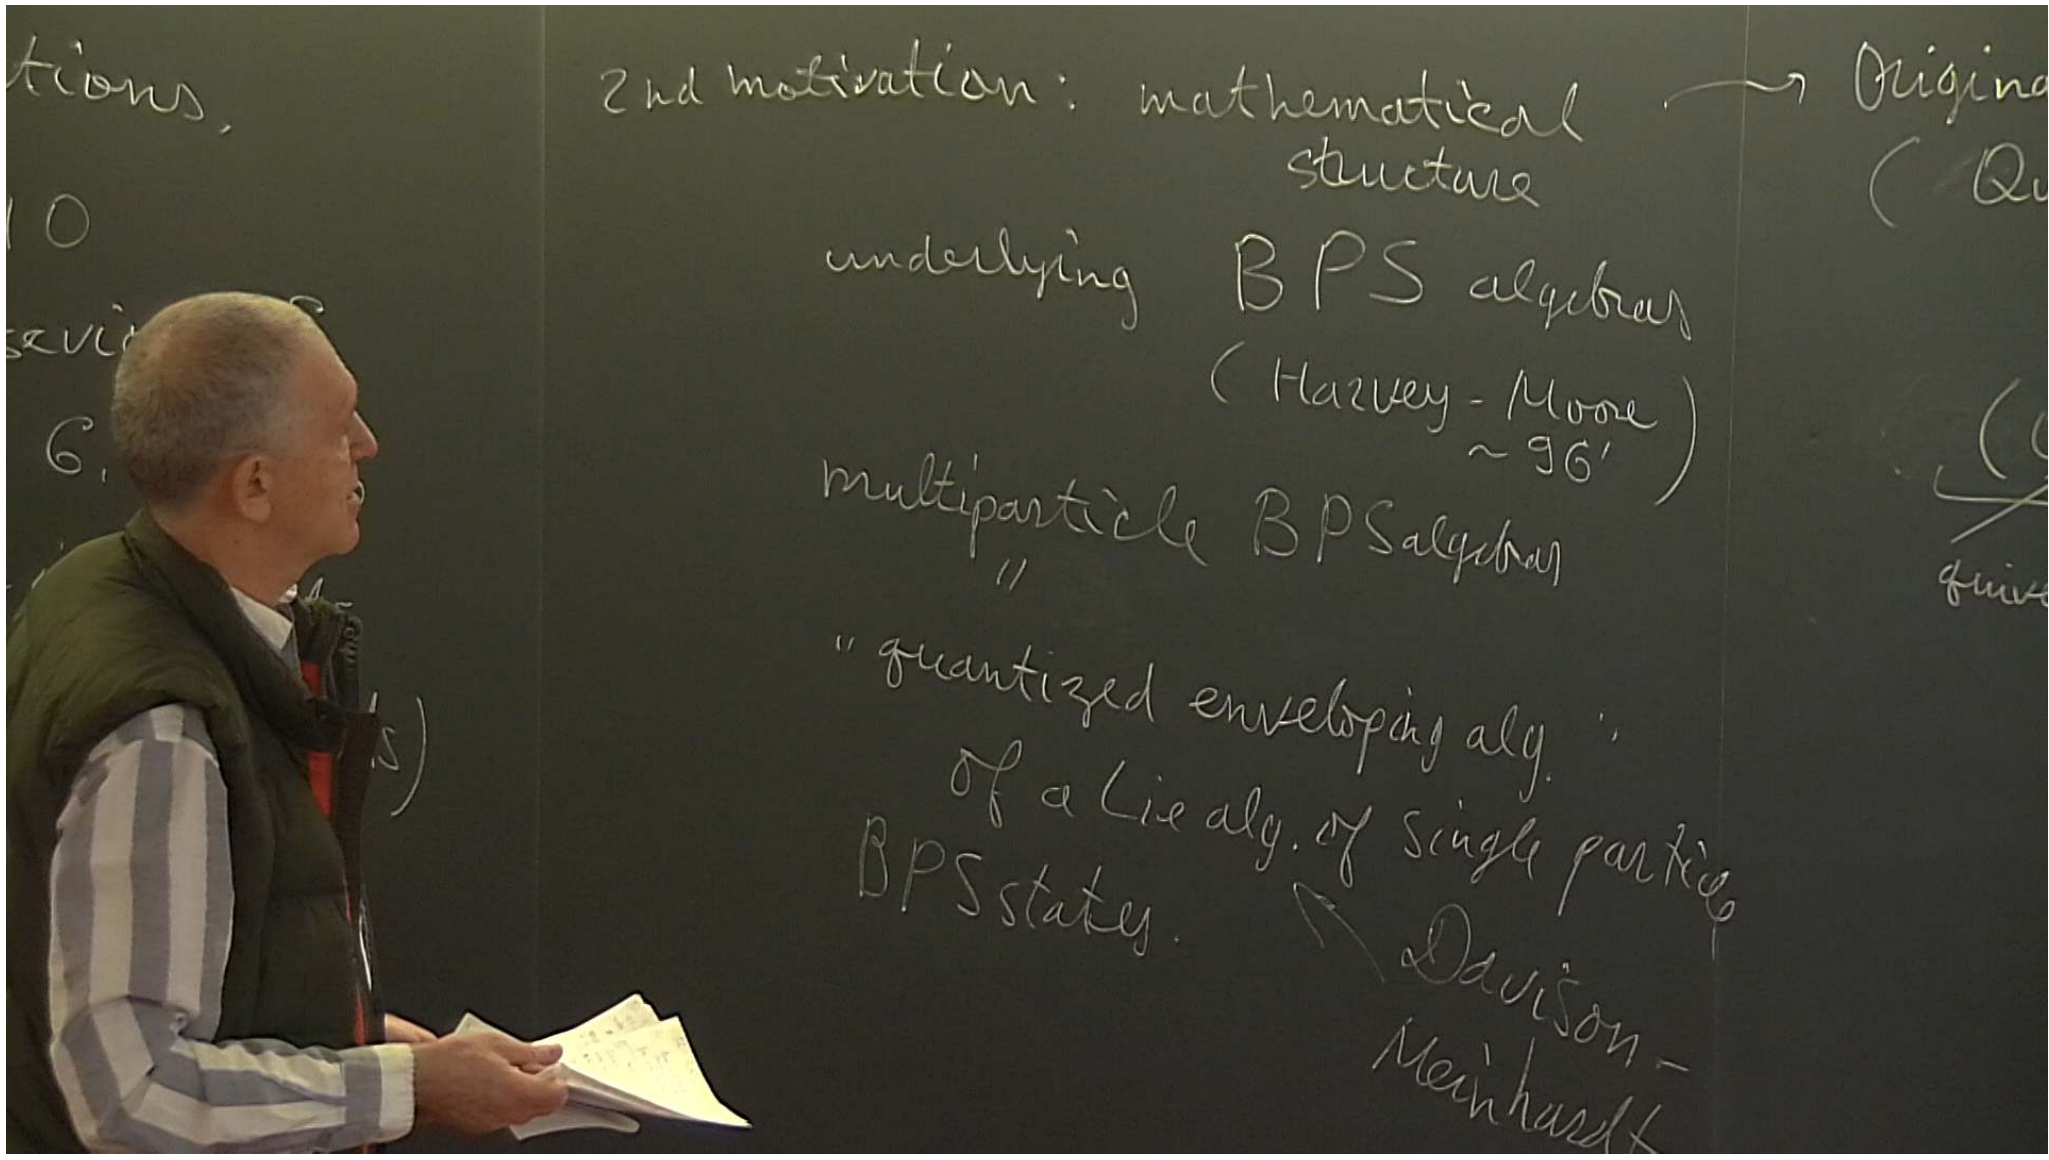 tions,
10
6,
s)
2nd motivation: mathematical
structure
underlying BPS algebras
(Harvey-Moore
~ 96')
multiparticle BPS algebras
"
"quantized enveloping alg."
of a Lie alg. of single particle
BPS states.
Davison-
Meinhardt
→ Origina
( Qu
(
quive